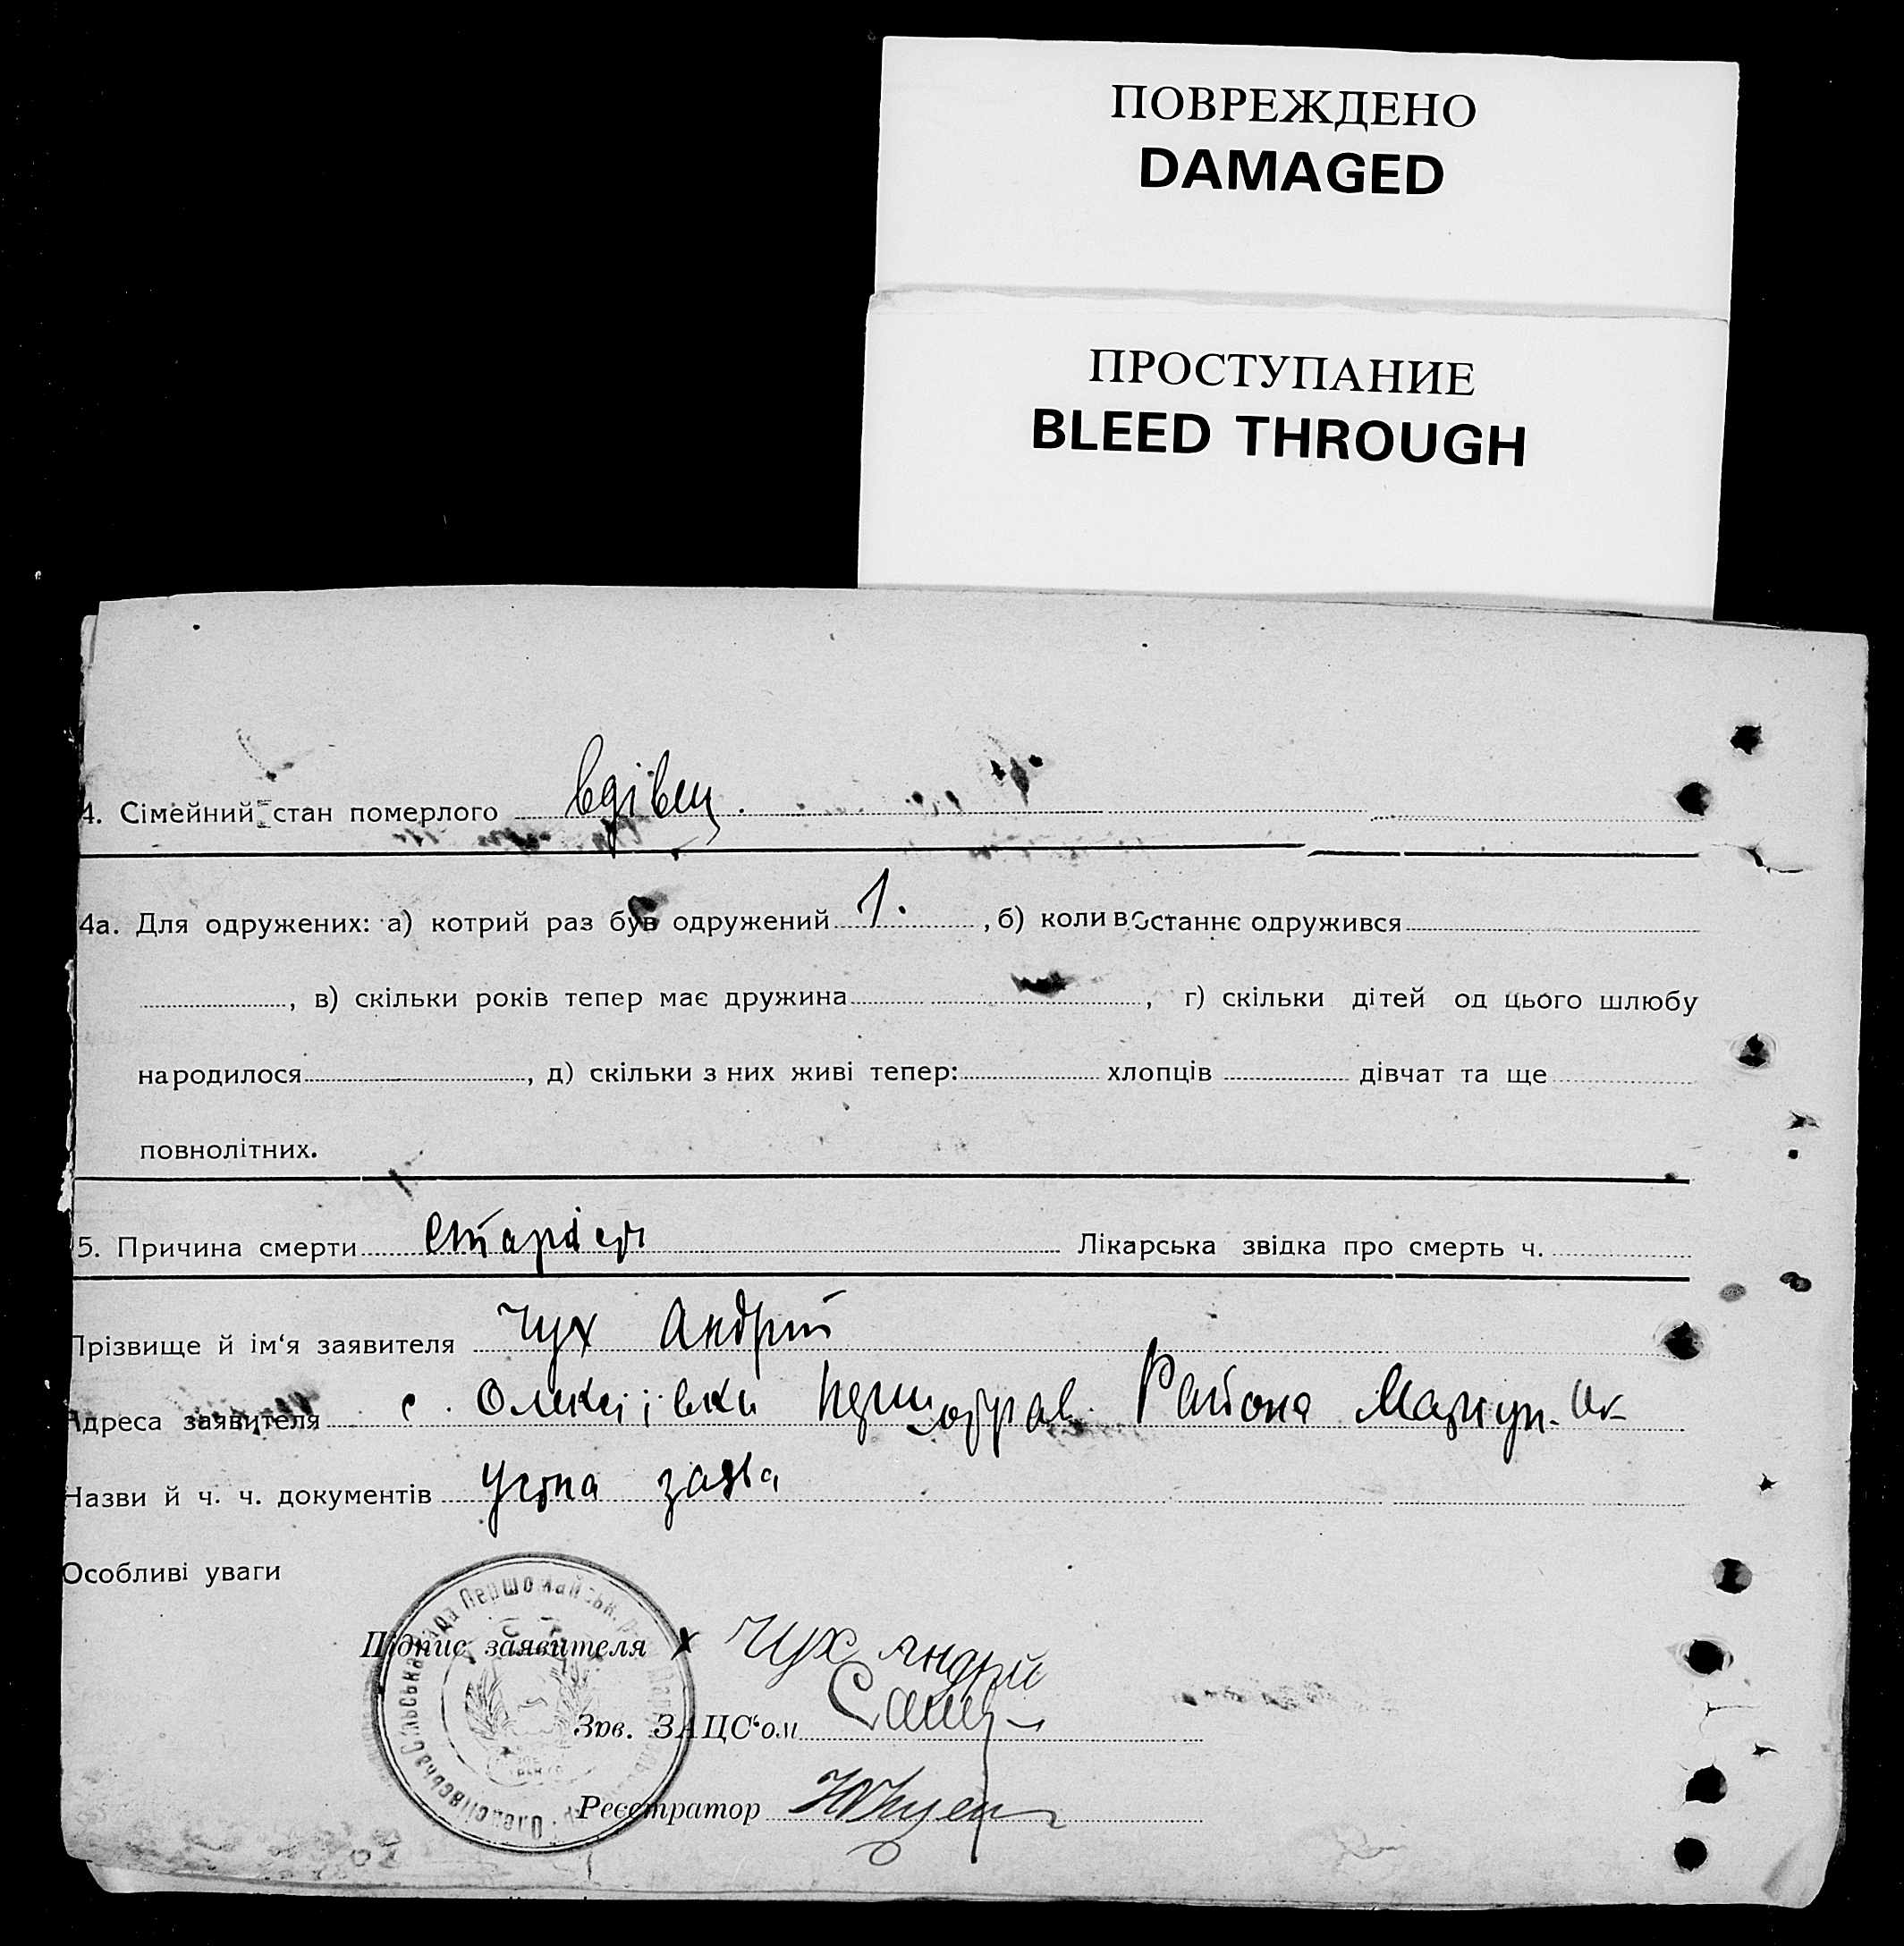 ПОВРЕЖДЕНО
DAMAGED
ПРОСТУПАНИЕ
BLEED THROUGH
4. Сімейний стан померлого вдівец.
4а. Для одружених: а) котрий раз був одружений 1. , б) коли востаннє одружився
, в) скільки років тепер має дружина , г) скільки дітей од цього шлюбу
народилося , д) скільки з них живі тепер: хлопців дівчат та ще
повнолітних.
5. Причина смерти Лікарська звідка про смерть ч.
Прізвище й ім'я заявителя Чух Андрій
Адреса заявителя с. Олексіївки Района Маріуп. Ок
Назви й ч. ч. документів Устна заява
Особливі уваги
Підпис заявителя х Чух Андрій
Зав. ЗАЦС'ом
Реєстратор
Олексіївська Сільська Рада Першомайськ.